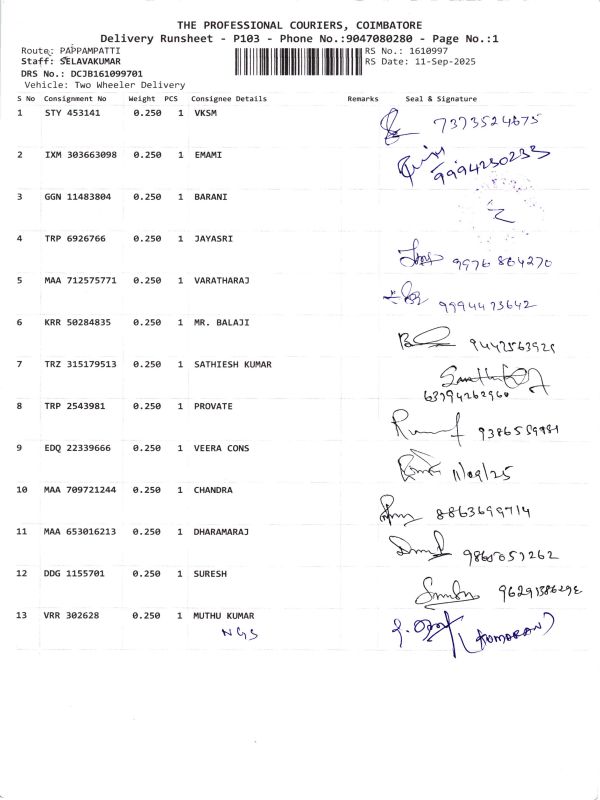 THE PROFESSIONAL COURIERS, COIMBATORE
Delivery Runsheet - P103 - Phone No.:9047080280 - Page No.:1
Route: PAPPAMPATTI
RS No.: 1610997
Staff: SELAVAKUMAR
RS Date: 11-Sep-2025
DRS No.: DCJB161099701
Vehicle: Two Wheeler Delivery
S No Consignment No Weight PCS Consignee Details Remarks Seal & Signature
1 STY 453141 0.250 1 VKSM 7373524675
2 IXM 303663098 0.250 1 EMAMI 9994230233
3 GGN 11483804 0.250 1 BARANI
4 TRP 6926766 0.250 1 JAYASRI 9976 864270
5 MAA 712575771 0.250 1 VARATHARAJ 9994473642
6 KRR 50284835 0.250 1 MR. BALAJI
7 TRZ 315179513 0.250 1 SATHIESH KUMAR
63794262960
8 TRP 2543981 0.250 1 PROVATE
9 EDQ 22339666 0.250 1 VEERA CONS 11/09/25
10 MAA 709721244 0.250 1 CHANDRA 8863699714
11 MAA 653016213 0.250 1 DHARAMARAJ
12 DDG 1155701 0.250 1 SURESH
13 VRR 302628 0.250 1 MUTHU KUMAR (KUMARAN)
NGS